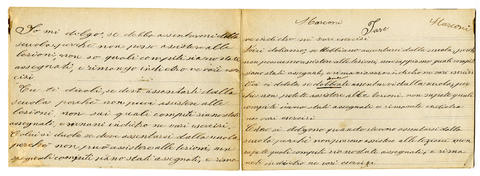 Io mi dolgo, se debbo assentarmi dalla
scuola, perchè non posso assistere alle
lezioni, non so quali compiti siano stati
assegnati, e rimango indietro ne vari eser
cisi
Tu ti duoli, se devi assentarti dalla
scuola perchè non puoi assistere alle
lezioni, non sai quali compiti siano stati
assegnati, e rimani indietro ne vari esercisi
Colui si duole se deve assentarsi dalla scuola
perchè non può assistere alle lezioni, non
sa quali compiti siano stati assegnati, e rima
Marconi Marconi
ne indietro ne vari esercisi
Noi doliamo, se dobbiamo assentarci dalla scuola, perchè
non possiamo assistere alle lezioni, non sappiamo quali compiti
siano stati assegnati, e rimaniamo indietro ne vari esercisi
Voi vi dolete se dobbiate assentarvi dalla scuola, per
chè non potete assistere alle lezioni, non sapete quali
compiti siano stati assegnati e rimanete indietro
ne vari esercisi
si dolgono quando devono assentarsi dalla
scuola perchè non possono assistere alle lezioni non
sanno quali compiti siano stati assegnati, e rima
indietro ne vari esercisi